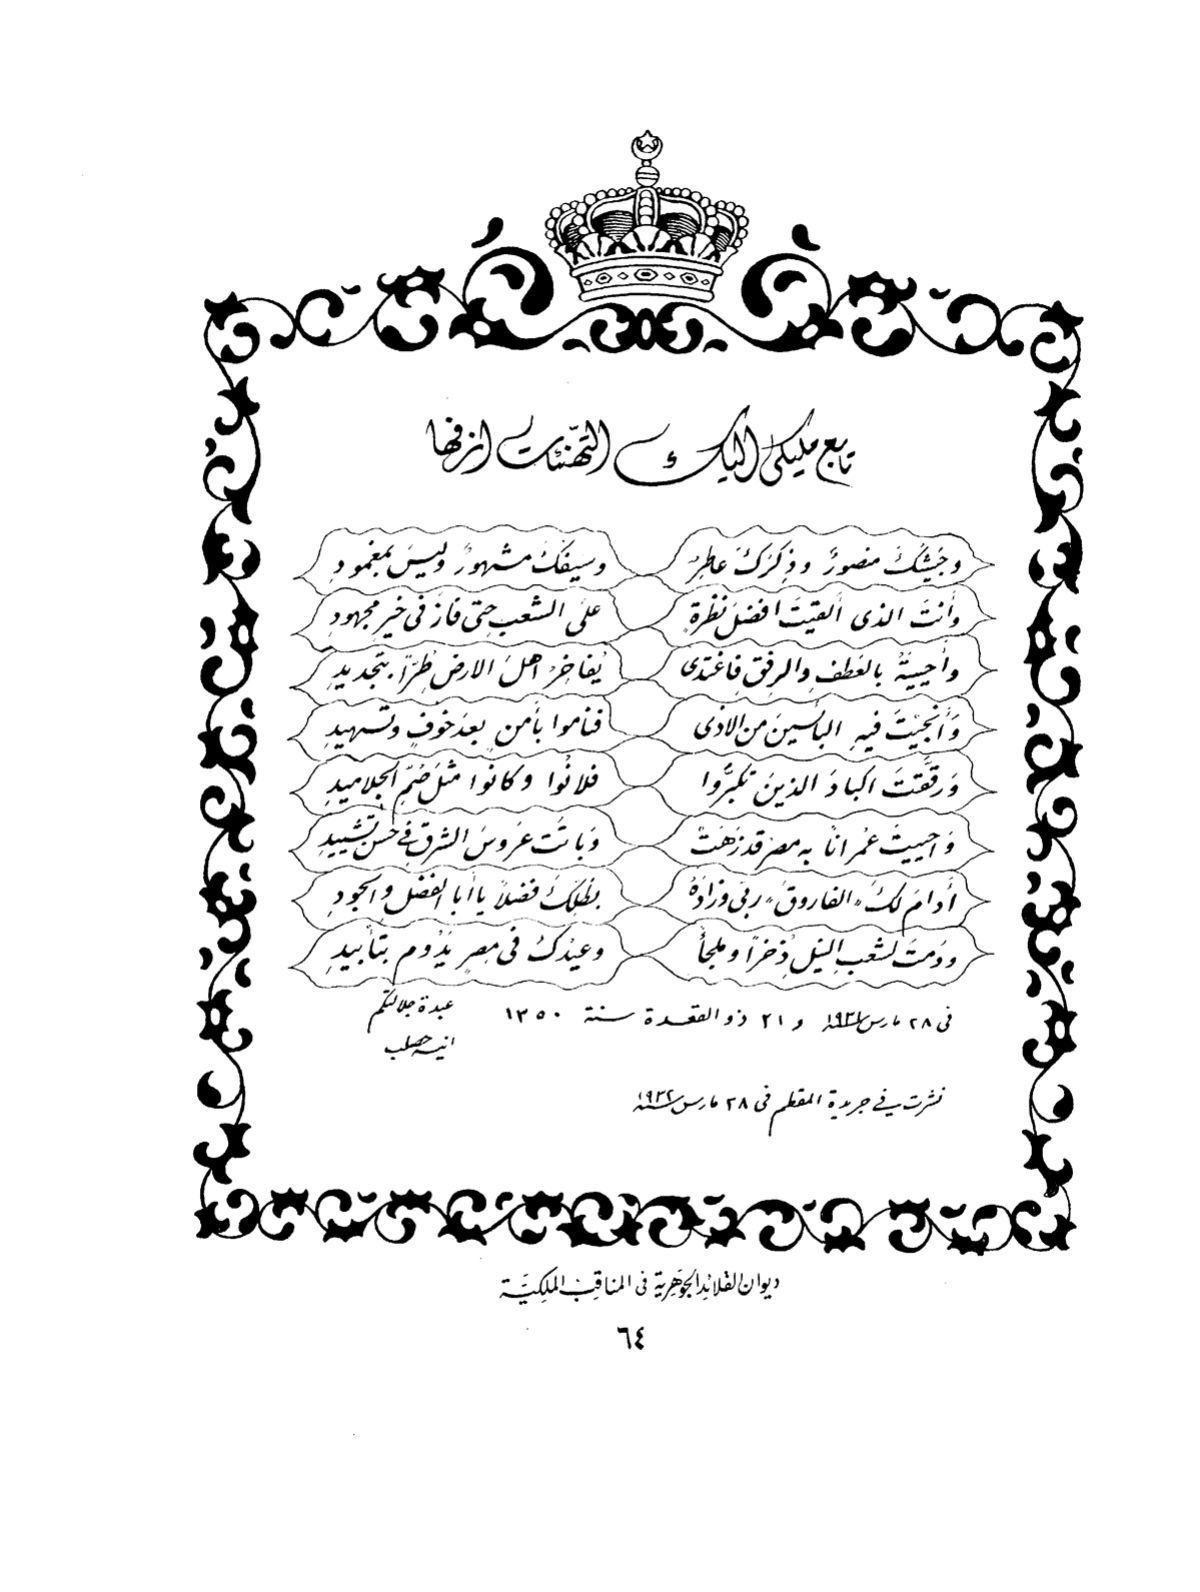 تابع مليكى إليك التهنيئات ازفها
وجَيشكَ منصورٌ وذِكركَ عاطِرٌ وسَيفكَ مشهورٌ وليسَ بمغمودِ
وأنتَ الذى ألقيتَ افضلَ نظرةٍ علَى الشعبِ حتى فازَ فى خيرِ مجهودِ
وأحييتَهُ بالعَطفِ والرفقِ فاغتدى يُفاخرُ اهلَ الارضِ طُرّاً بتجديدِ
وَأنجيْتَ فيهِ البائسينَ من الاذى فناموا بأمنٍ بعدَ خوفٍ وتسهيدِ
وَرقَّقتَ اكبادَ الذينَ تكبرَّوا فلانُوا وكانوا مثلَ صُمّ الجلاميدِ
وَاحييتَ عُمراناً به مصرُ قد زَهَتْ وَباتَت عَروسَ الشرق فِى حُسنِ تشييدِ
أدامَ لكَ «الفاروقَ» ربى وزادَهُ بظلِكَ فضلاً يا أبا الفضلِ والجودِ
ودمتَ لشعبِ النيلِ ذُخراً وملجأً وعيدكَ فى مصرٍ يَدُوم بتأييدِ
فى ٢٨ مارس سنة ١٩٣٢ و ٢١ ذو القعدة سنة ١٣٥٠ عبدة جلالتكم
نشرت فى جريدة المقطم فى ٢٨ مارس سنة ١٩٣٢
ديوان القلائد الجوَهرية فى المناقب الملكيَّة
٦٤